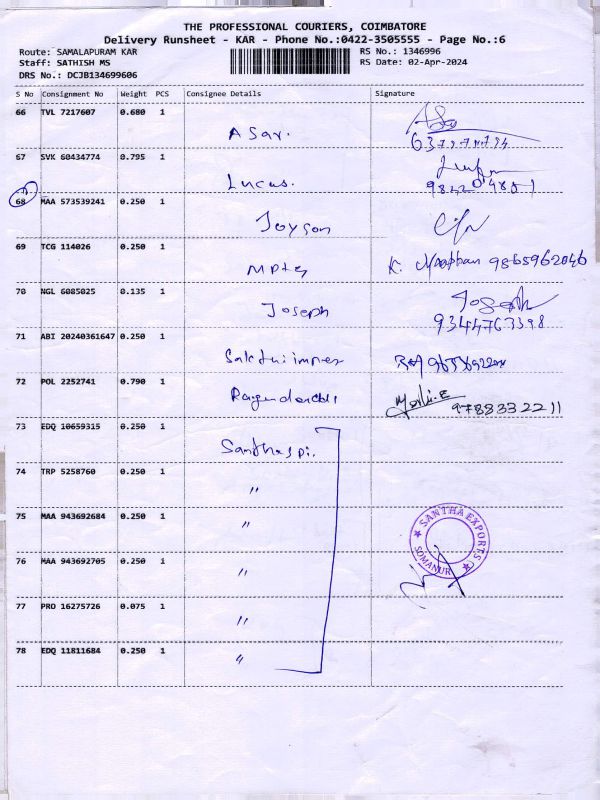 THE PROFESSIONAL COURIERS, COIMBATORE
Delivery Runsheet - KAR - Phone No.:0422-3505555 - Page No.:6
Route: SAMALAPURAM KAR
RS No.: 1346996
Staff: SATHISH MS
RS Date: 02-Apr-2024
DRS No.: DCJB134699606
S No Consignment No Weight PCS Consignee Details Signature
66 TVL 7217607 0.680 1
Asar.
67 SVK 60434774 0.795 1
Lucas.
68 MAA 573539241 0.250 1
Joyson
69 TCG 114026 0.250 1
K. 9865962046
70 NGL 6085025 0.135 1
Joseph
Joseph
9344763398
71 ABI 20240361647 0.250 1
72 POL 2252741 0.790 1
9788332211
73 EDQ 10659315 0.250 1
74 TRP 5258760 0.250 1
"
75 MAA 943692684 0.250 1
"
SANTHA EXPORTS
SOMANUR
76 MAA 943692705 0.250 1
"
77 PRO 16275726 0.075 1
"
78 EDQ 11811684 0.250 1
"